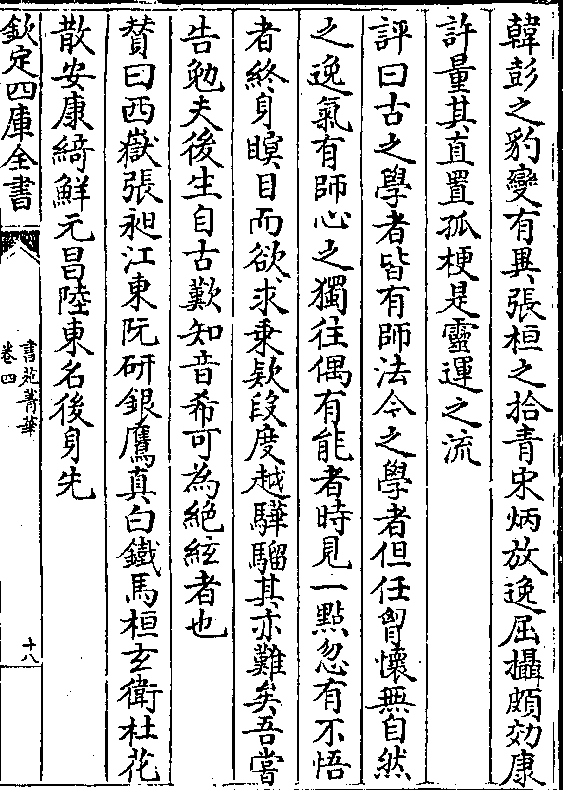 韓彭之豹變有異張桓之拾青宋炳放逸屈攝頗効康
許量其直置孤梗是靈運之流
評曰古之學者皆有師法今之學者但任胷懷無自然
之逸氣有師心之獨往偶有能者時見一點忽有不悟
者終身瞑目而欲求乗欵段度越驊騮其亦難矣吾嘗
告勉夫後生自古歎知音希可為絶絃者也
賛曰西嶽張昶江東阮研銀鷹真白鐵馬桓𤣥衛杜花
散安康綺鮮元昌陸柬名後身先
欽定四庫全書
書苑菁華
卷四
十八